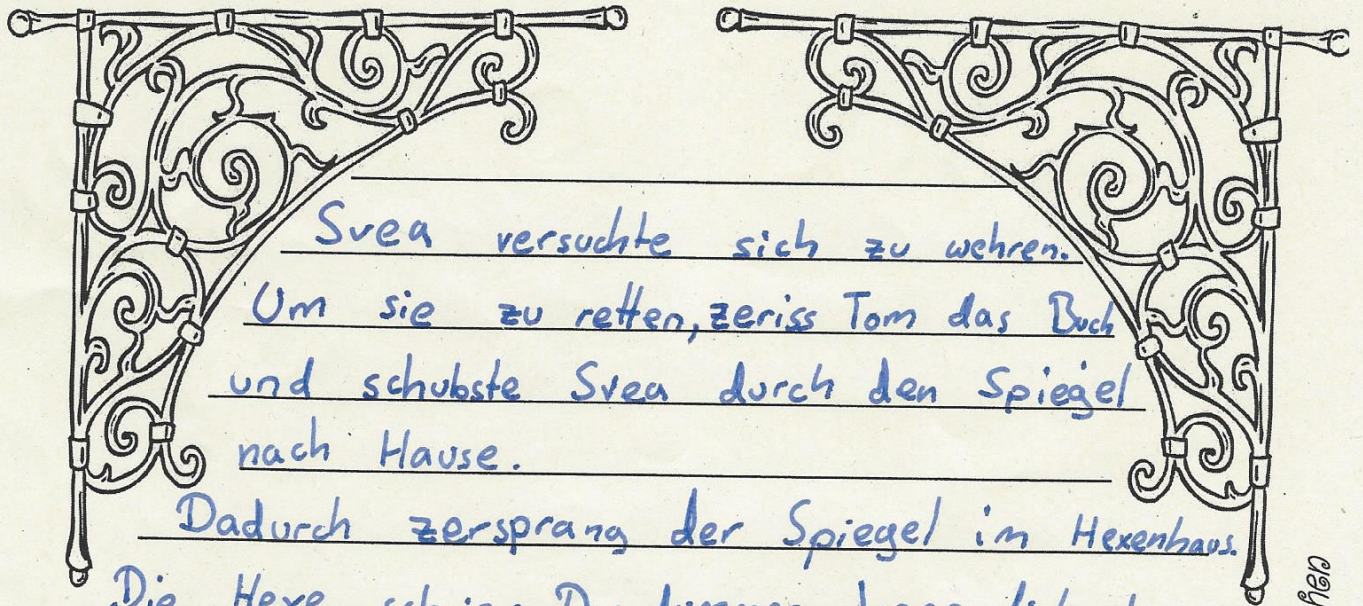 Svea versuchte sich zu wehren.
Um sie zu retten, zeriss Tom das Buch
und schubste Svea durch den Spiegel
nach Hause.
Dadurch zersprang der Spiegel im Hexenhaus.
Die Hexe